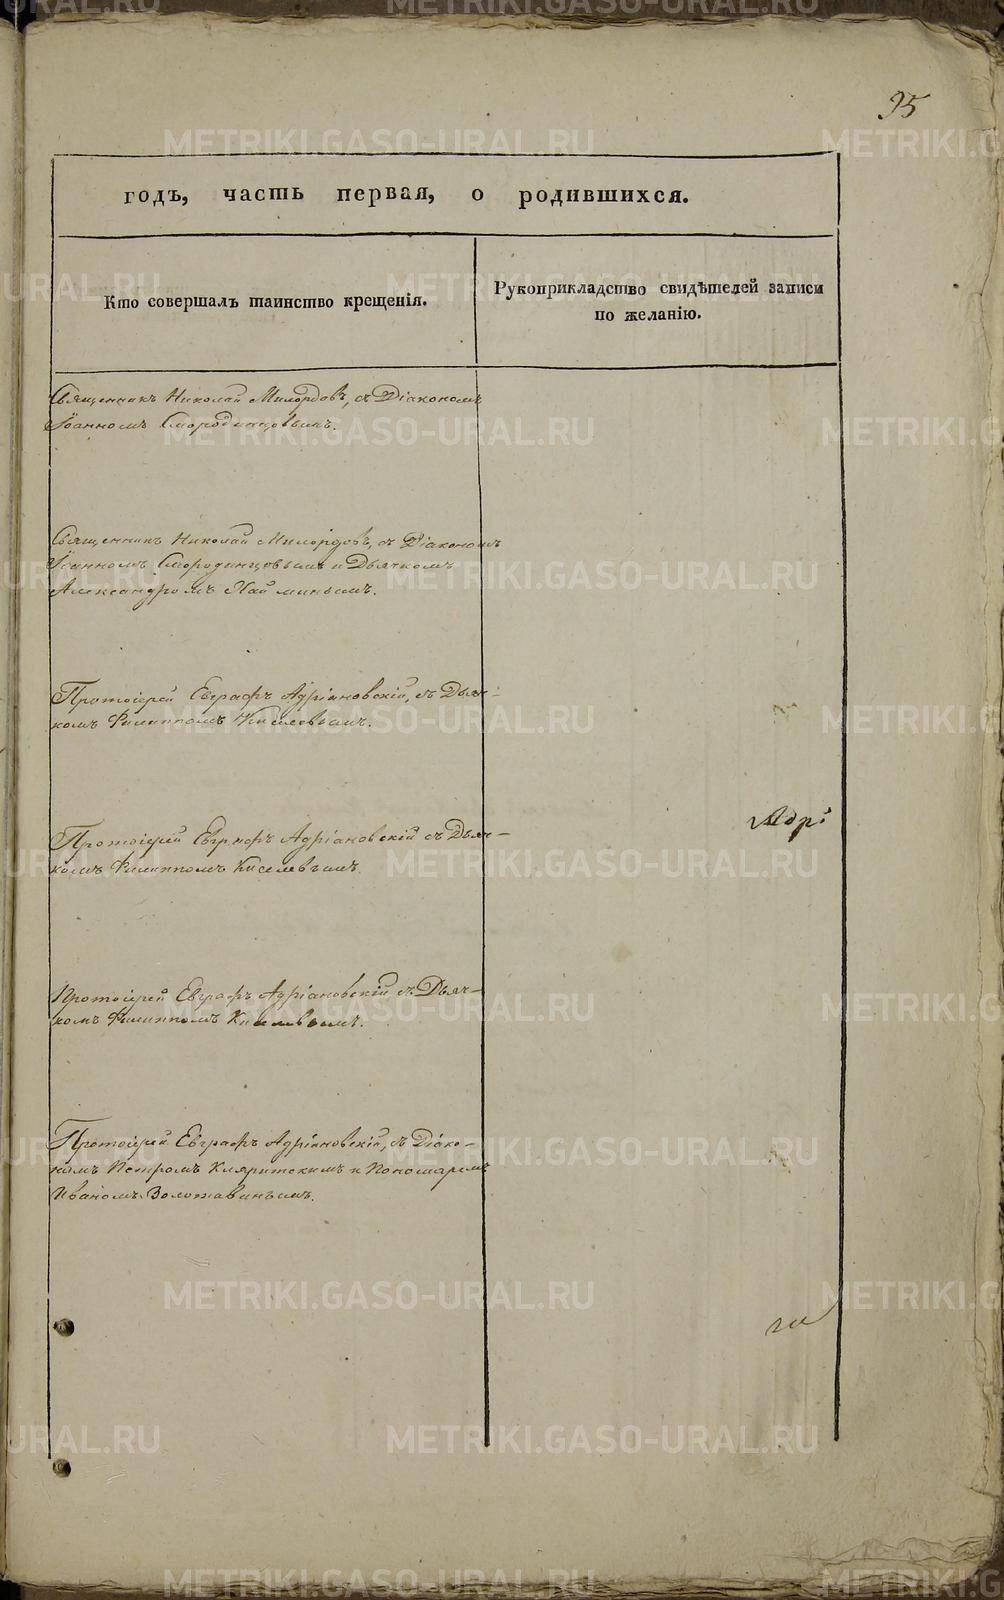 95
годъ, часть первая, о родившихся.
Кто совершалъ таинство крещенія.
Рукоприкладство свидѣтелей записи
по желанію.
Священникъ Николай Милордовъ, съ Діакономъ
Іоанномъ Смородинцовымъ.
Священникъ Николай Милордовъ, съ Діакономъ
Іоанномъ Смородинцовымъ и Дьячкомъ
Александромъ
Протоіерей Евграфъ Адріановскій, съ Дьяч-
комъ Филиппомъ Киселевымъ.
Адрі
Протоіерей Евграфъ Адріановскій съ Дьяч-
комъ Филиппомъ Киселевымъ
Протоіерей Евграфъ Адріановскій, съ Дьяч-
комъ Филиппомъ Киселевымъ.
Протоіерей Евграфъ Адріановскій, съ Діако-
номъ Петромъ и Пономаремъ
Иваномъ Золотавинымъ.
METRIKI.GASO-URAL.RU